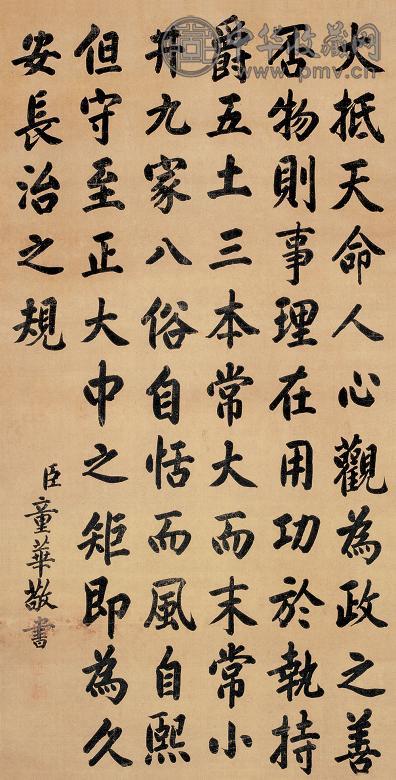 中华收藏网
www.pmv.cn
大抵天命人心觀為政之善
否物則事理在用功於執持
爵五土三本常大而末常小
井九家八俗自恬而風自熙
但守至正大中之矩即為久
安長治之規
臣童華敬書